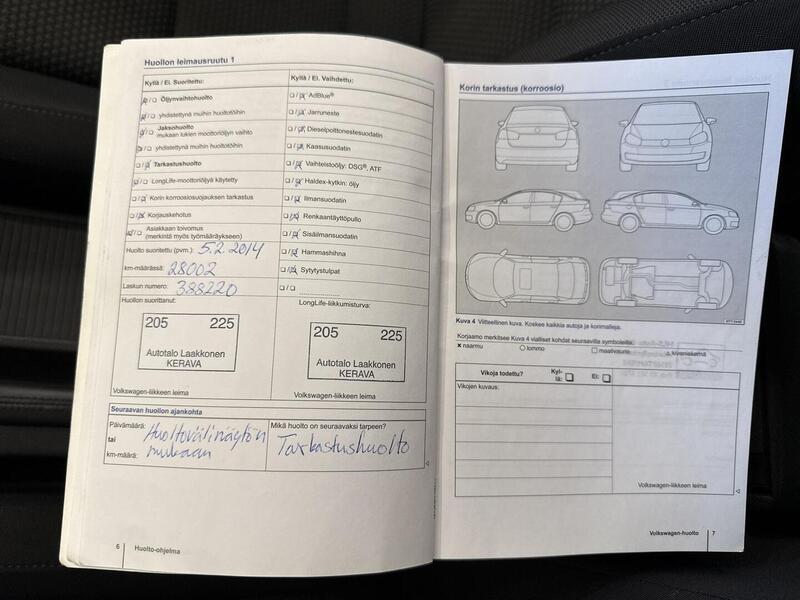 Huollon leimausruutu 1
Kyllä / Ei. Suoritettu:
Öljynvaihtohuolto
yhdistettynä muihin huoltotöihin
Jaksohuolto
mukaan lukien moottoriöljyn vaihto
yhdistettynä muihin huoltotöihin
Tarkastushuolto
LongLife-moottoriöljyä käytetty
Korin korroosiosuojauksen tarkastus
Korjauskehotus
Asiakkaan toivomus
(merkintä myös työmääräykseen)
Huolto suoritettu (pvm.): 5.2.2014
km-määrässä: 28002
Laskun numero: 388220
Huollon suorittanut:
205 225
Autotalo Laakkonen
KERAVA
Volkswagen-liikkeen leima
Kyllä / Ei. Vaihdettu:
AdBlue®
Jarruneste
Dieselpolttonestesuodatin
Kaasusuodatin
Vaihteistoöljy: DSG®, ATF
Haldex-kytkin: öljy
Ilmansuodatin
Renkaantäyttöpullo
Sisäilmansuodatin
Hammashihna
Sytytystulpat
LongLife-liikkumisturva:
205 225
Autotalo Laakkonen
KERAVA
Volkswagen-liikkeen leima
Seuraavan huollon ajankohta
Päivämäärä: Huoltovälinäytön
tai mukaan
km-määrä:
Mikä huolto on seuraavaksi tarpeen?
Tarkastushuolto
6 Huolto-ohjelma
Korin tarkastus (korroosio)
Kuva 4 Viitteellinen kuva. Koskee kaikkia autoja ja korimalleja.
Korjaamo merkitsee Kuva 4 vialliset kohdat seuraavilla symboleilla:
naarmu lommo maalivaurio kiveniskemä
Vikoja todettu? Kyl-
lä: Ei:
Vikojen kuvaus:
Volkswagen-liikkeen leima
Volkswagen-huolto 7